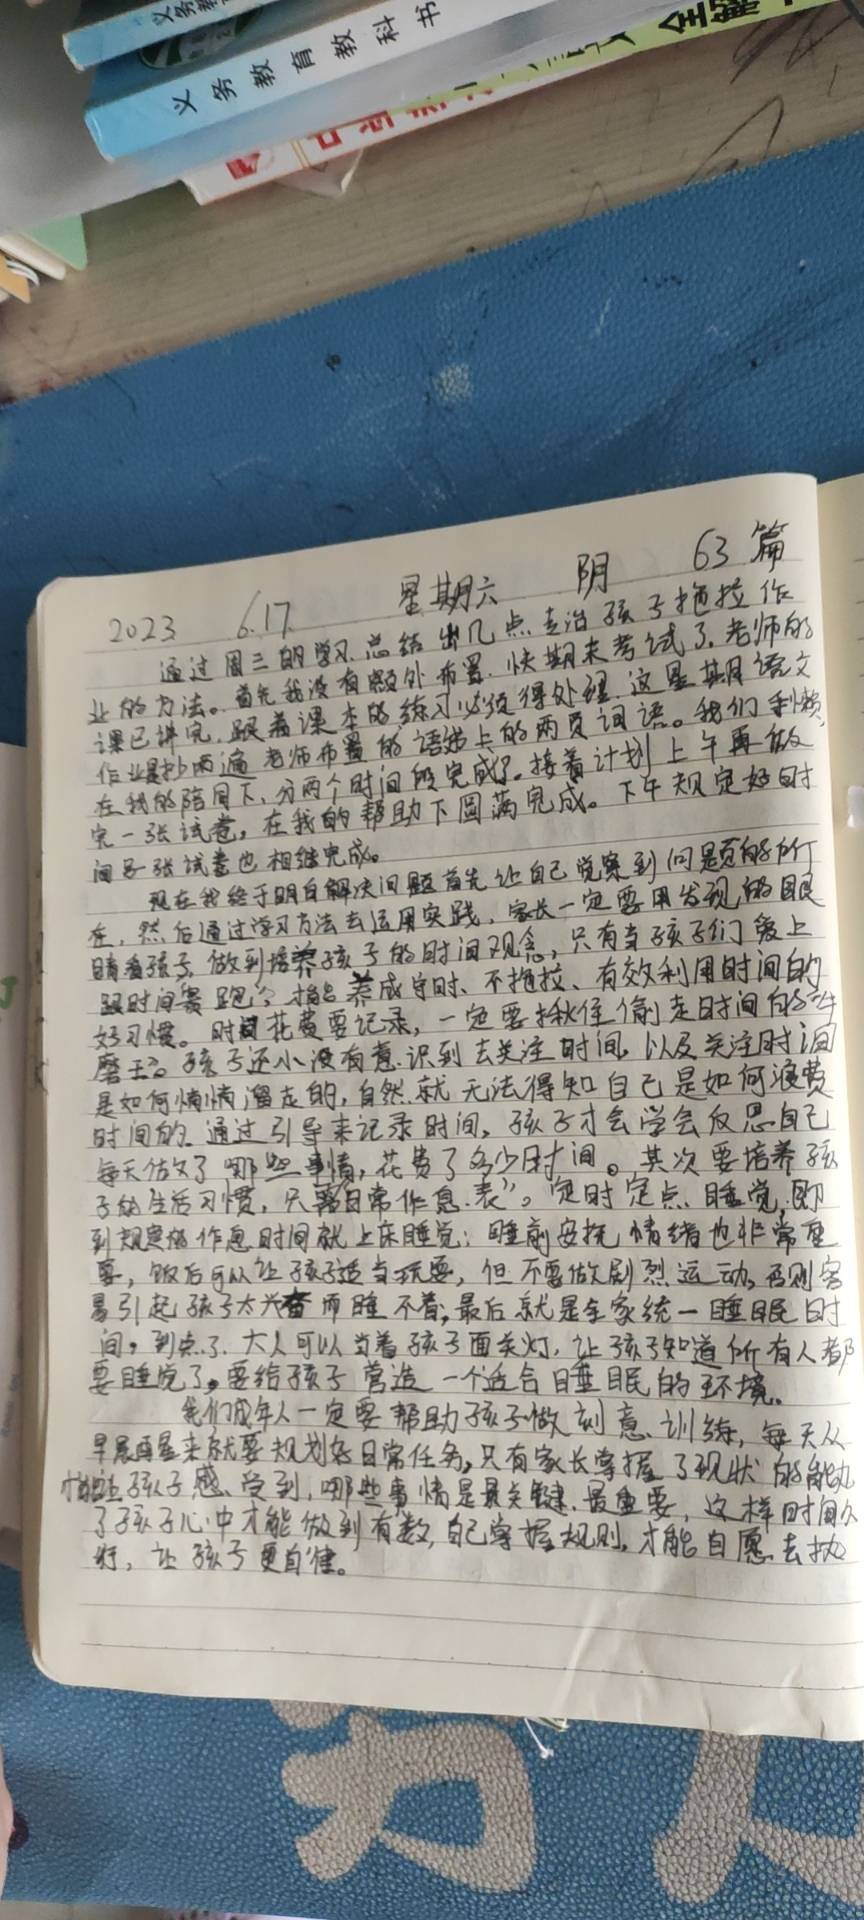 义务教
义务教育教科书
全解
2023 6.17 星期六 阴 63篇
通过周三的学习.总结出几点去治孩子拖拉作
业的方法。首先我没有额外布置.快期末考试了.老师的
课已讲完.跟着课本的练习必须得处理.这星期语文
作业是抄两遍老师布置的语文书上的两页词语。我们
在我的陪同下,分两个时间段完成了。接着计划上午再做
完一张试卷,在我的帮助下圆满完成。下午规定好时
间另张试卷也相继完成。
现在我终于明白解决问题首先让自己觉察到问题的所
在,然后通过学习方法去运用实践,家长一定要用发现的眼
睛看孩子.做到培养孩子的时间观念,只有当孩子们爱上
跟时间赛跑”,才能养成守时、不拖拉、有效利用时间的
好习惯。时间花费要记录,一定要揪住偷走时间的“小
磨王”。孩子还小没有意识到去关注时间,以及关注时间
是如何悄悄溜走的,自然就无法得知自己是如何浪费
时间的.通过引导来记录时间,孩子才会学会反思自己
每天做了哪些事情,花费了多少时间。其次要培养孩
子的生活习惯,只需日常作息表”。定时定点睡觉,即
到规定的作息时间就上床睡觉;睡前安抚情绪也非常重
要,饭后可以让孩子适当玩耍,但不要做剧烈运动,否则容
易引起孩子太兴奋而睡不着;最后就是全家统一睡眠时
间,到点了.大人可以当着孩子面关灯,让孩子知道所有人都
要睡觉了,要给孩子营造一个适合睡眠的环境。
我们成年人一定要帮助孩子做刻意训练,每天从
早晨醒来就要规划好日常任务,只有家长掌握了现状的能力
才能让孩子感受到,哪些事情是最关键.最重要,这样时间久
了孩子心中才能做到有数,自己掌握规则,才能自愿去执
行,让孩子更自律。